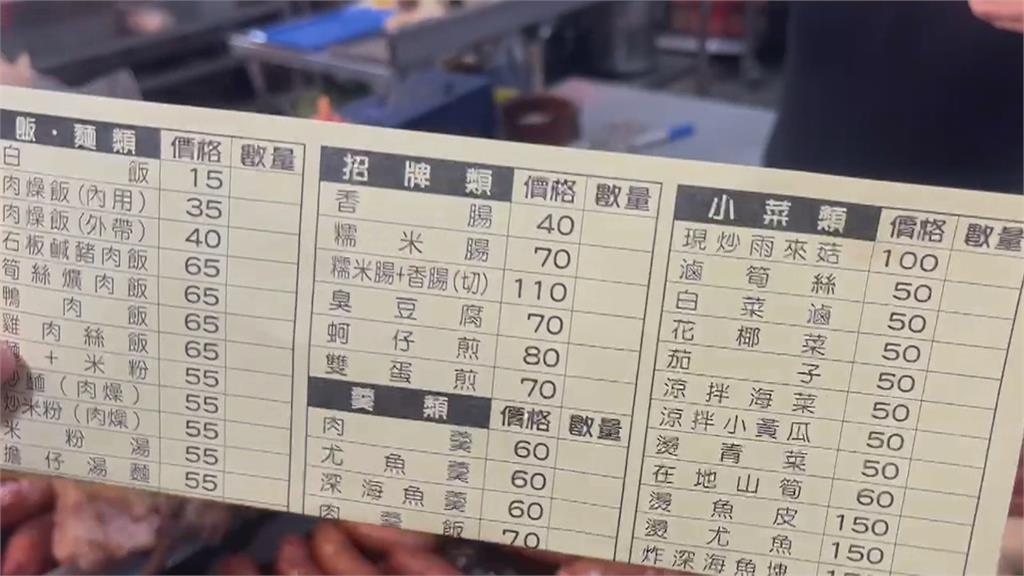 飯·麵類 價格 數量
白飯 15
肉燥飯(內用) 35
肉燥飯(外帶) 40
石板鹹豬肉飯 65
筍絲爌肉飯 65
鴨肉飯 65
雞肉絲飯 65
麵+米粉 55
炒麵(肉燥) 55
炒米粉(肉燥) 55
米粉湯 55
擔仔湯麵 55
招牌類 價格 數量
香腸 40
糯米腸 70
糯米腸+香腸(切) 110
臭豆腐 70
蚵仔煎 80
雙蛋煎 70
羹類 價格 數量
肉羹 60
尤魚羹 60
深海魚羹 60
肉羹飯 70
小菜類 價格 數量
現炒雨來菇 100
滷筍絲 50
白菜滷 50
花椰菜 50
茄子 50
涼拌海菜 50
涼拌小黃瓜 50
燙青菜 50
在地山筍 60
燙魚皮 150
燙尤魚 150
炸深海魚塊